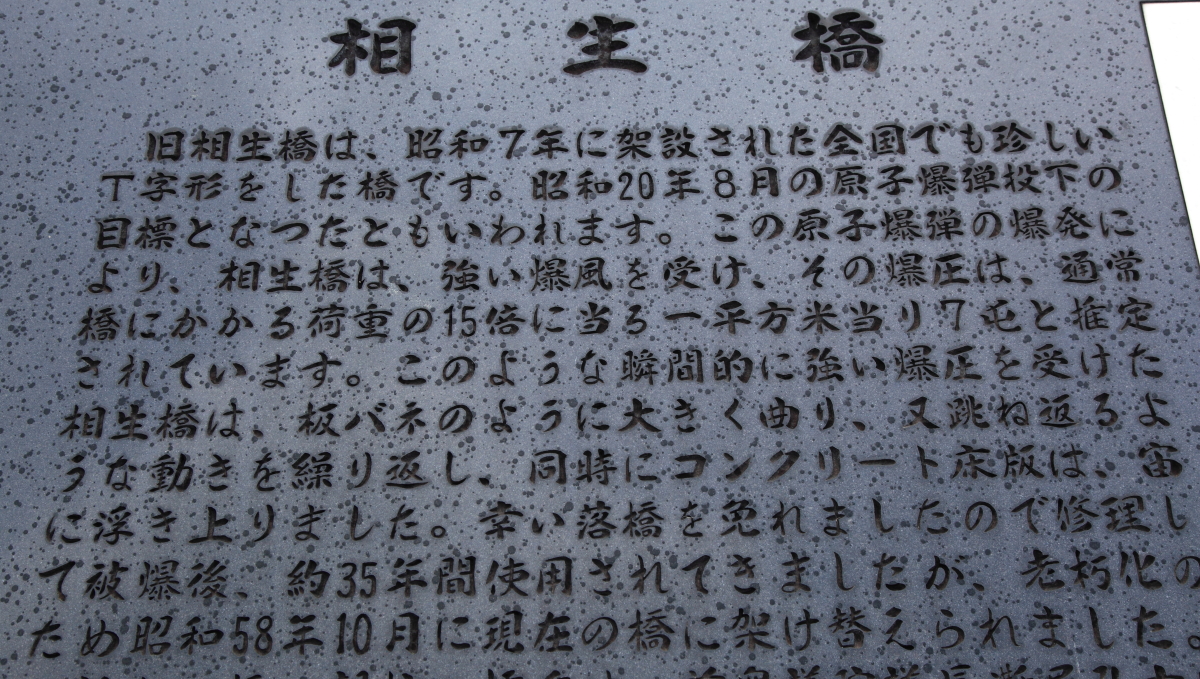 相生橋
旧相生橋は、昭和7年に架設された全国でも珍しい
丁字形をした橋です。昭和20年8月の原子爆弾投下の
目標となつたともいわれます。この原子爆弾の爆発に
より、相生橋は、強い爆風を受け、その爆圧は、通常
橋にかかる荷重の15倍に当る一平方米当り7屯と推定
されています。このような瞬間的に強い爆圧を受けた
相生橋は、板バネのように大きく曲り、又跳ね返るよ
うな動きを繰り返し、同時にコンクリート床版は、宙
に浮き上りました。幸い落橋を免れましたので修理し
て被爆後、約35年間使用されてきましたが、老朽化の
ため昭和58年10月に現在の橋に架け替えられました。